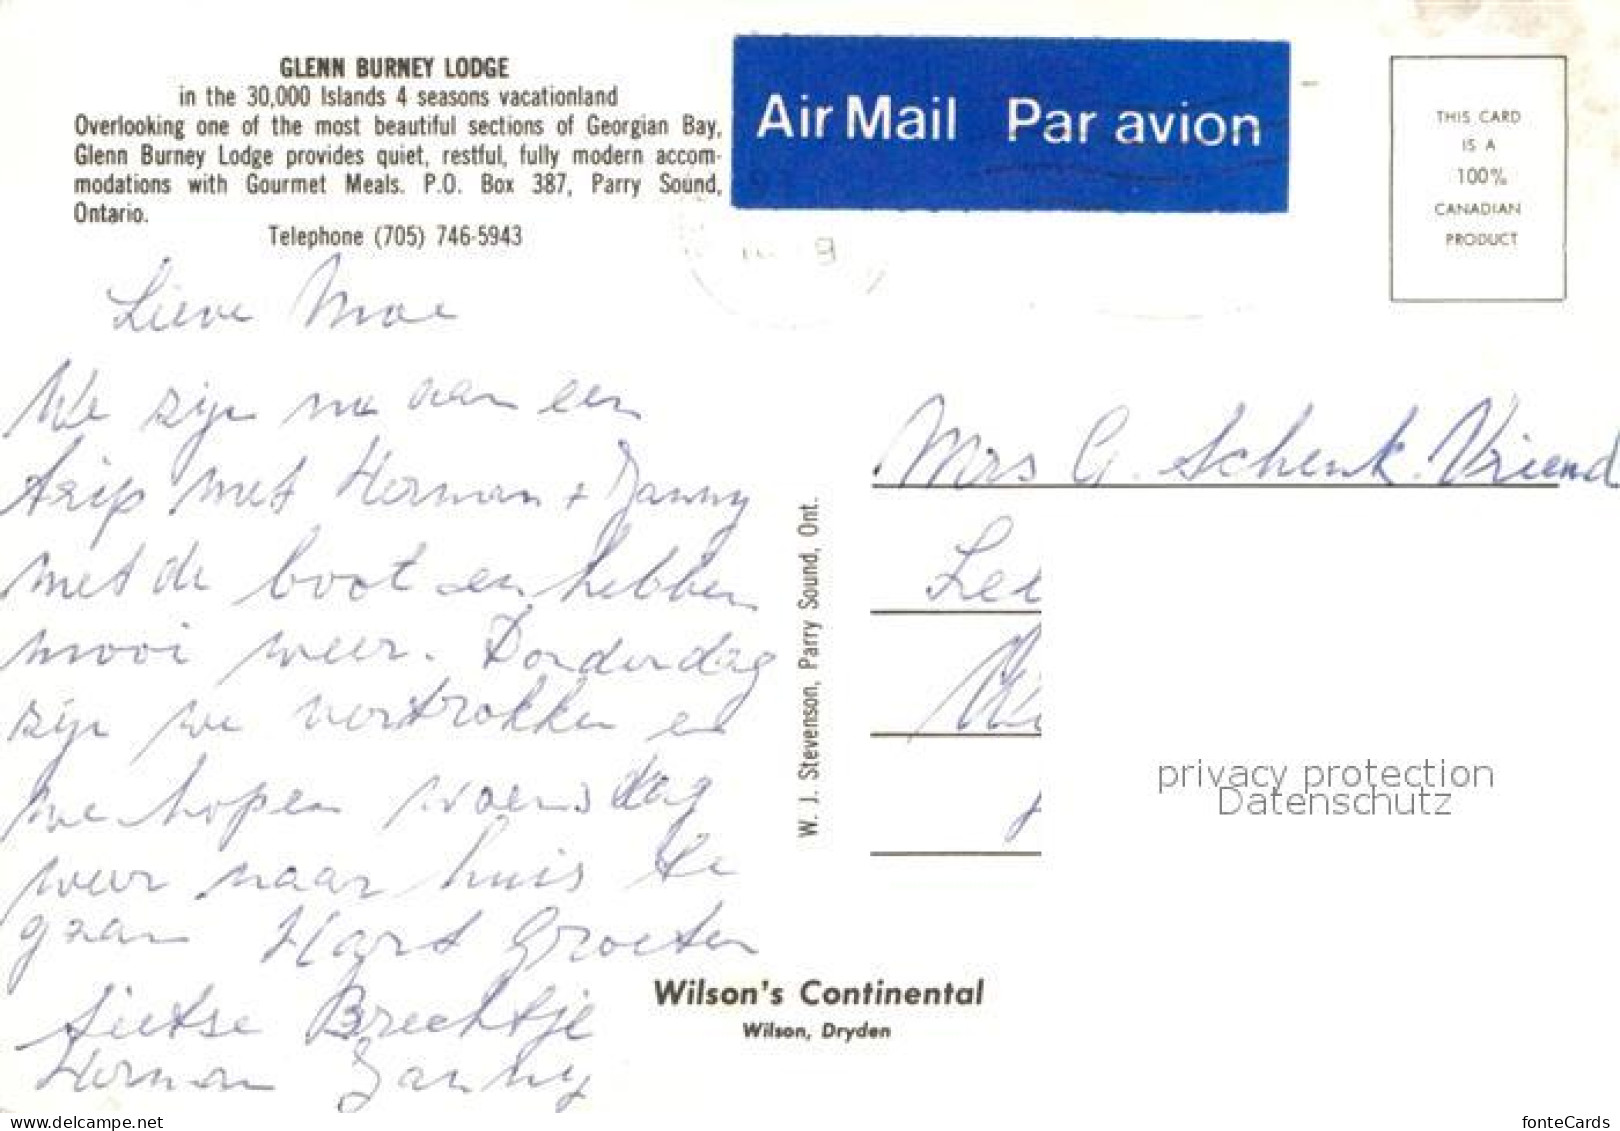 GLENN BURNEY LODGE
in the 30,000 Islands 4 seasons vacationland
Overlooking one of the most beautiful sections of Georgian Bay,
Glenn Burney Lodge provides quiet, restful, fully modern accom-
modations with Gourmet Meals. P.O. Box 387, Parry Sound,
Ontario.
Telephone (705) 746-5943
Air Mail Par avion
THIS CARD
IS A
100%
CANADIAN
PRODUCT
Lieve Moe
We zijn nu aan een
trip met Herman + Janny
met de boot en hebben
mooi weer. Donderdag
zijn we vertrokken en
we hopen woensdag
weer naar huis te
gaan Hart Groeten
Sietse Brechtje
Herman Janny
W. J. Stevenson, Parry Sound, Ont.
Mrs G. Schenk. Vriend
privacy protection
Datenschutz
Wilson's Continental
Wilson, Dryden
www.delcampe.net
fonteCards